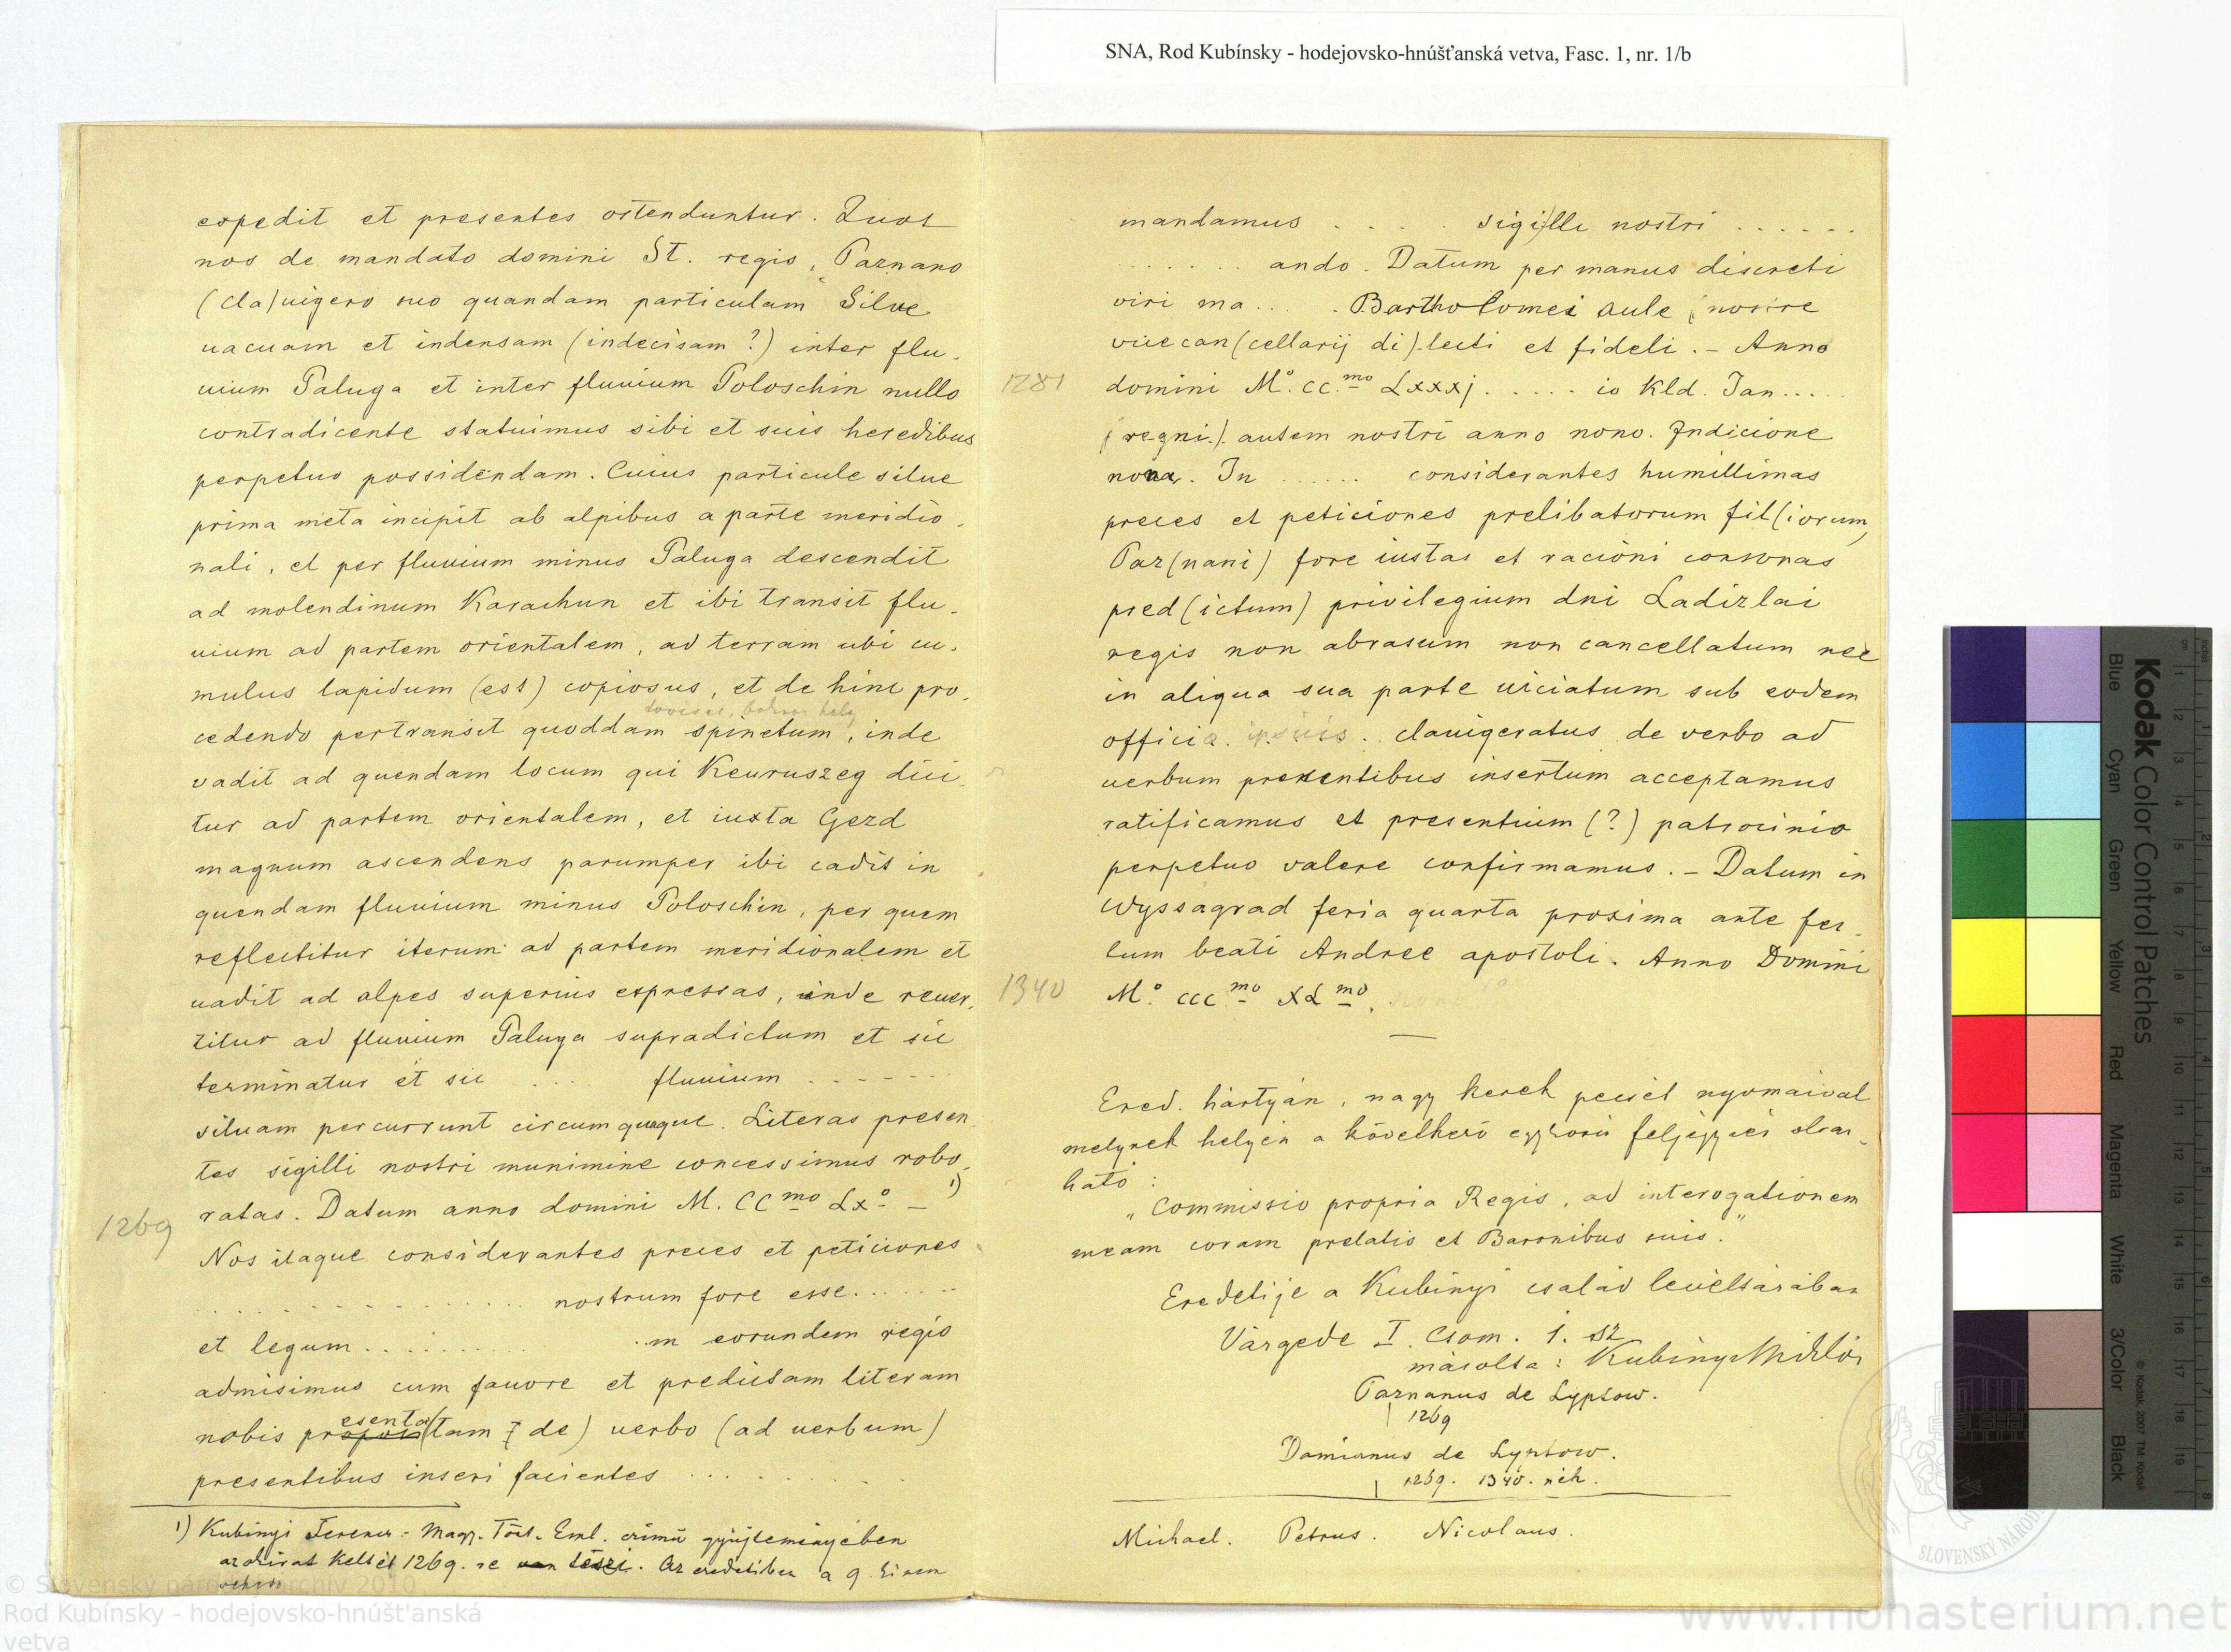 SNA, Rod Kubínsky - hodejovsko-hnúšťanská vetva, Fasc. 1, nr. 1/b
expedit et presentes ostenduntur. Quos
nos de mandato domini St. regis, Paznano
(cla)uigero suo quandam particulam Silue
uacuam et indensam (indecisam?) inter flu-
uium Paluga et inter fluuium Poloschin nullo
contradicente statuimus sibi et suis heredibus
perpetuo possidendam. Cuius particule silue
prima meta incipit ab alpibus a parte meridio-
nali, et per fluuium minus Paluga descendit
ad molendinum Karachun et ibi transit flu-
uium ad partem orientalem, ad terram ubi cu-
mulus lapidum (est) copiosus, et de hinc pro-
cedendo pertransit quoddam spinetum, inde
vadit ad quendam locum qui Keuruszeg dici-
tur ad partem orientalem, et iuxta Gezd
magnum ascendens parumper ibi cadit in
quendam fluuium minus Poloschin, per quem
reflectitur iterum ad partem meridionalem et
uadit ad alpes superius expressas, inde reuer-
titur ad fluuium Paluga supradictum et sic
terminatur et sic . . . . fluuium . . . . . . .
siluam percurrunt circumquaque. Literas presen-
tes sigilli nostri munimine concessimus robo-
ratas. Datum anno domini M. CC mo Lx o – 1)
1269
Nos itaque considerantes preces et peticiones
. . . . . . . . . . . . . . . . nostrum fore esse . . . . . .
et legum . . . . . . . . . . m eorundem regis
admisimus cum fauore et predictam literam
nobis presenta(tam de) uerbo (ad uerbum)
presentibus inseri facientes . . . . . . . . . .
1) Kubinyi Ferencz: Magy. Tört. Eml. czímü gyüjteményében
az okirat keltét 1269. re teszi. Az eredetiben a 9. et nem
mandamus . . . . . sigi)lli nostri . . . . . .
. . . . . . ando. Datum per manus discreti
viri ma . . . . Bartholomei aule (nostre
vicecan(cellarij di)lecti et fideli. – Anno
1281
domini M o. cc. mo Lxxxj . . . . . io Kld. Jan . . . . .
(regni) autem nostri anno nono. Indicione
nona. In . . . . . . considerantes humillimas
preces et peticiones prelibatorum fil(iorum)
Paz(nani) fore iustas et racioni consonas
pred(ictum) privilegium dni Ladizlai
regis non abrasum non cancellatum nec
in aliqua sua parte uiciatum sub eodem
officia ipsius clauigeratus de verbo ad
uerbum presentibus insertum acceptamus
ratificamus et presentium (?) patrocinio
perpetuo valere confirmamus. – Datum in
Wyssagrad feria quarta proxima ante fes-
tum beati Andree apostoli. Anno Domini
1340
M o. ccc mo XL mo.
Ered. hártyán, nagy kerek pecsét nyomaival
melynek helyén a következö egykorú feljegyzés olvas-
ható:
„Commissio propria Regis, ad interogationem
meam coram prelatis et Baronibus suis."
Eredetije a Kubinyi család levéltárában
Várgede I. Csom. 1. sz
másolta: Kubinyi Miklós
Paznanus de Lyptow.
1269
Damianus de Lyptow.
1269. 1340. néh.
Michael. Petrus. Nicolaus.
Kodak Color Control Patches
© Kodak, 2007 TM: Kodak
Blue Cyan Green Yellow Red Magenta White 3/Color Black
© Slovenský národný archív 2010
Rod Kubínsky - hodejovsko-hnúšťanská
vetva
www.monasterium.net
SLOVENSKÝ NÁROD